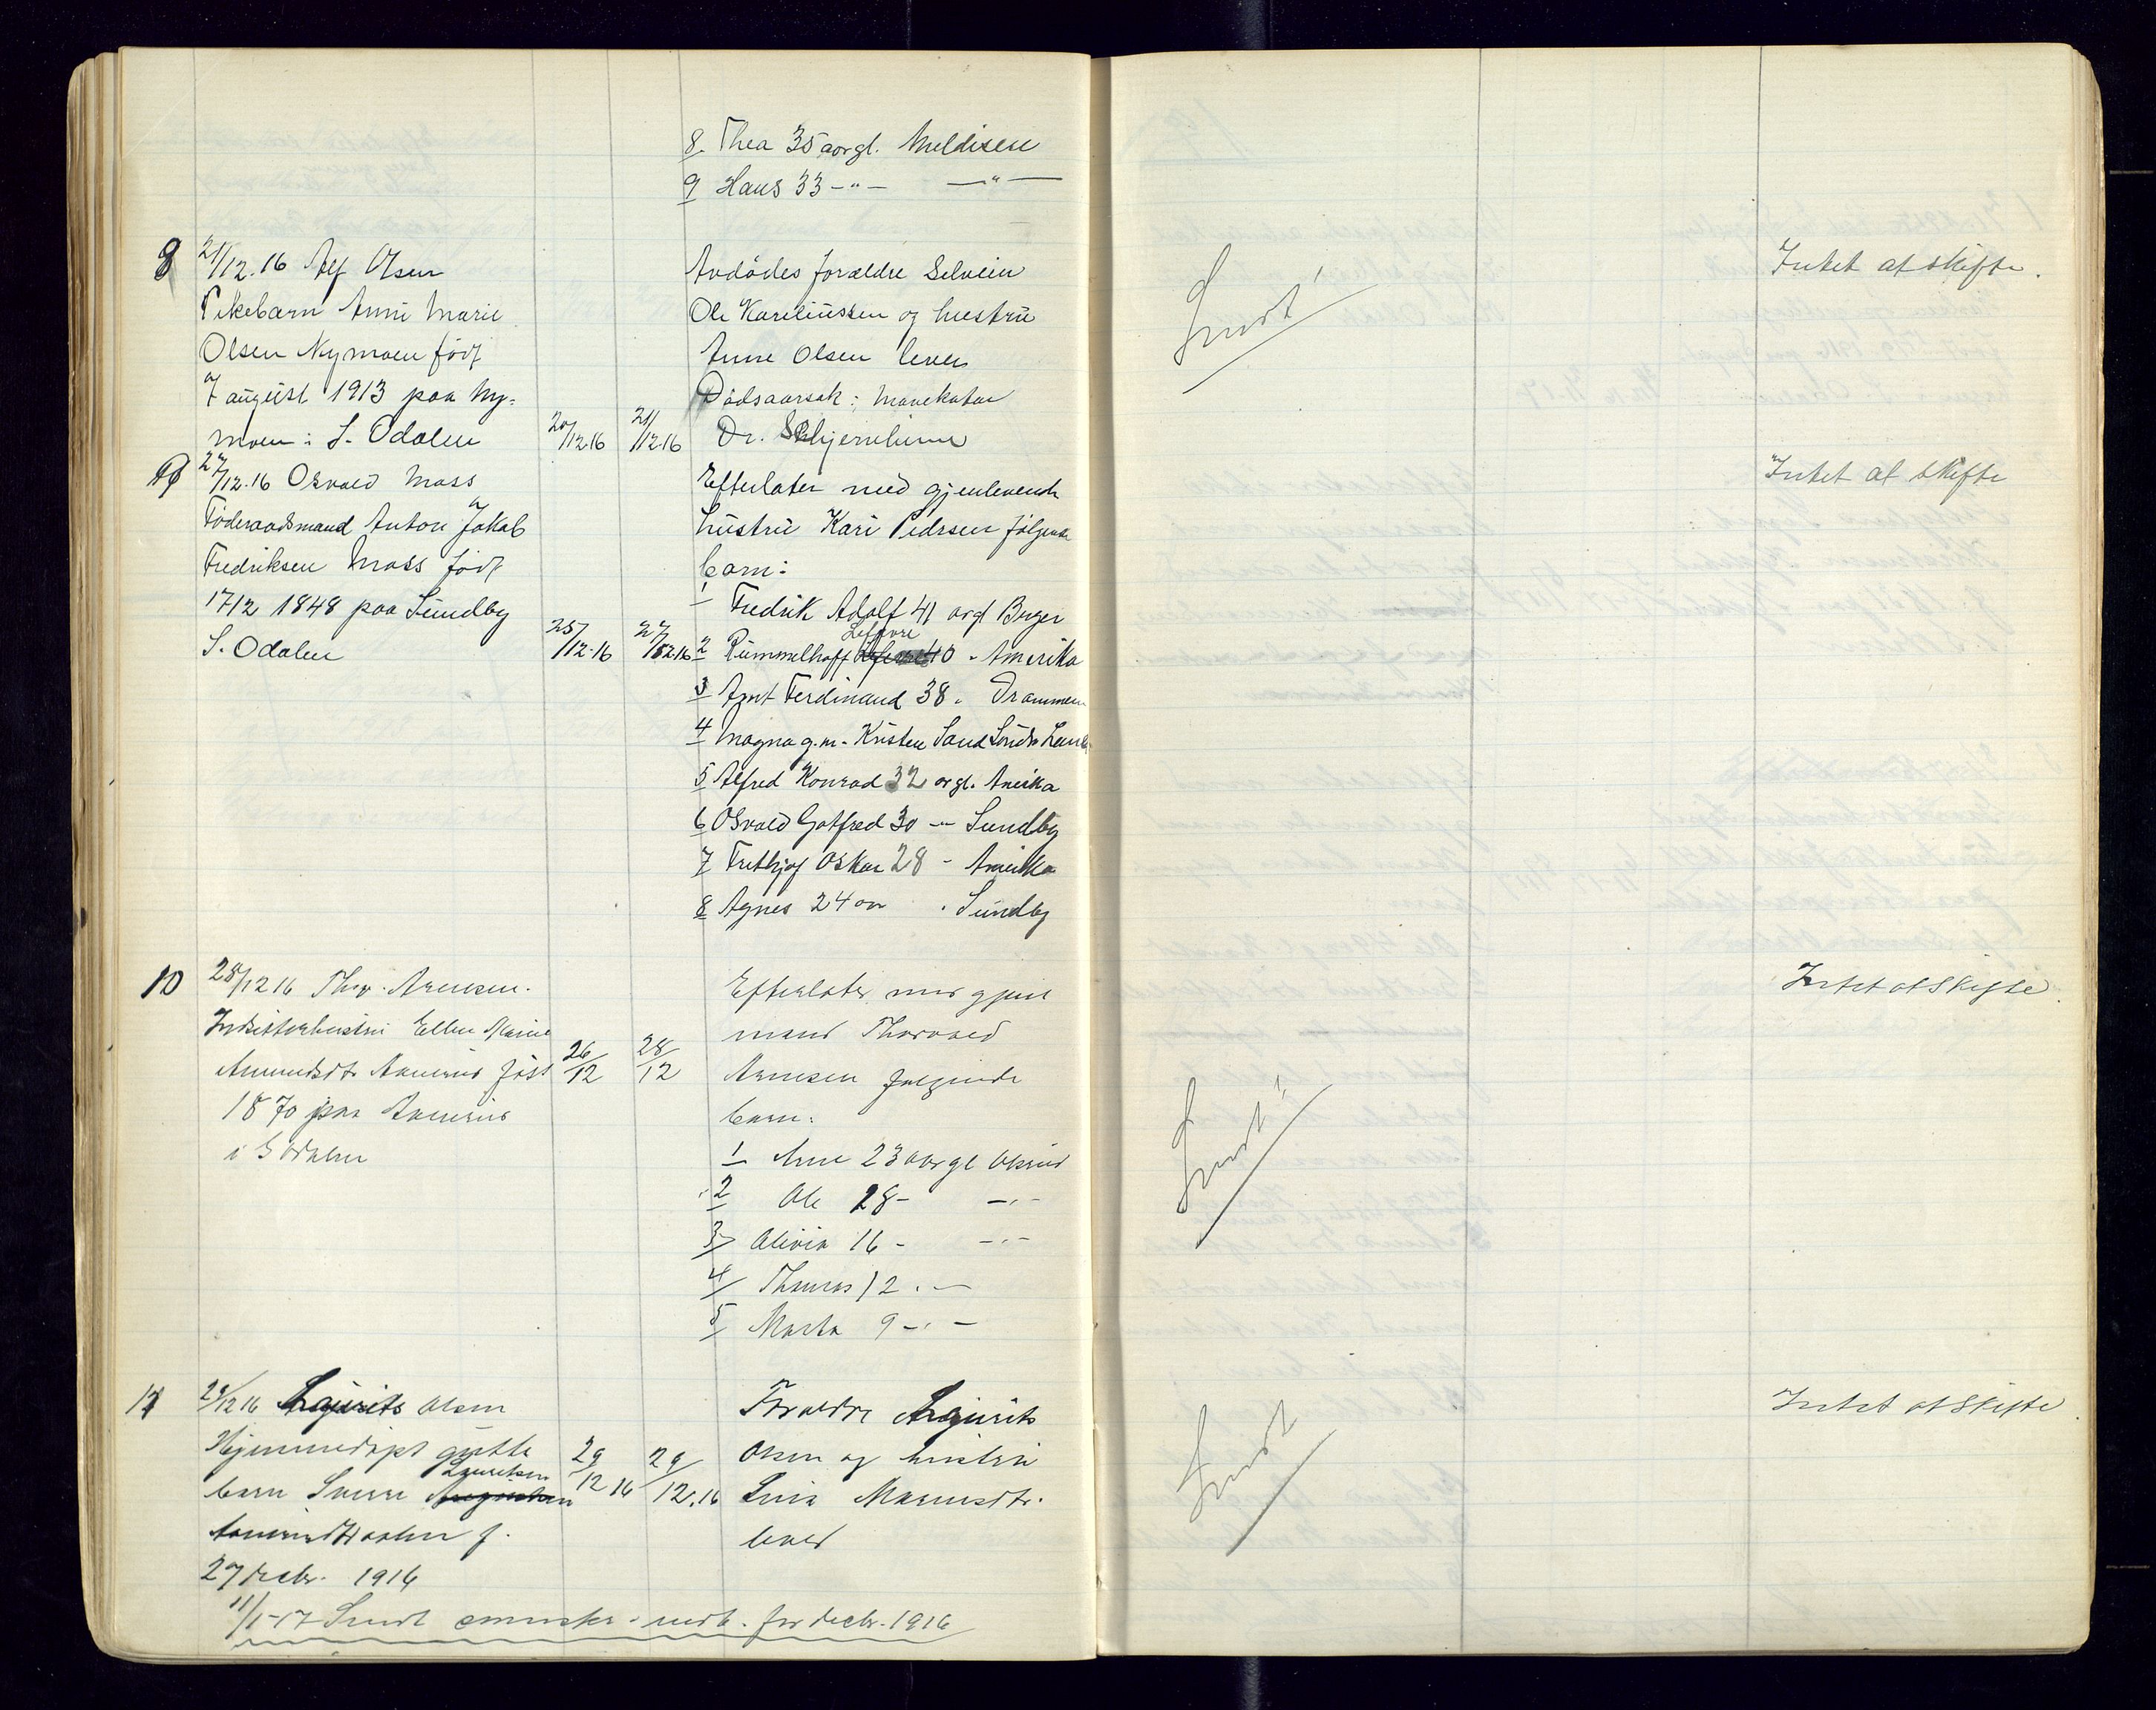 8. Thea 35 aar gl. Meldisen
9 Hans 33 -"- -"-
8 21/12.16 Alf Olsen
Pikebarn Anne Marie
Olsen Nymoen født
7 august 1913 paa Ny-
moen i S. Odalen 20/12.16 21/12.16
Avdødes forældre Selveier
Ole Kareliussen og hustru
Anne Olsen lever
Dødsaarsak: Mavekatar
Dr. Schjernheim
Sendt!
Intet at skifte.
9 27/12.16 Osvald Moss
Føderaadsmand Anton Jakob
Fredriksen Moss født
17/2 1848 paa Sundby
S. Odalen 25/12-16 27/12.16
Efterlater med gjenlevende
hustru Kari Pedrsen følgende
barn:
1 Fredrik Adolf 41 aar gl Berger
2 Rummelhoff Lefovre 40 - Amerika
3 Arnt Ferdinand 38 - Drammen
4 Magna g.m. Kristen Sand Søndr Land
5 Alfred Konrad 32 aar gl. Amerika
6 Osvald Gotfred 30 -"- Sundby
7 Fritjof Oskar 28 - Amerika
8 Agnes 24 aar - Sundby
Intet at skifte
10 28/12 16 Thv. Arnesen.
Indsitterhustru Ellen Marie
Amundsdtr født
1870 paa
i S Odalen
26/12 28/12
Efterlater med gjenl
mand Thorvald
Arnesen følgende
barn:
1 Arne 23 aar gl
2 Ole 28 - -"-
3 Olivia 16 - -"-
4 Thomas 12 - -
5 Marta 9 -"-
Sendt!
Intet at skifte
11 29/12 16 Laurits Olsen
Hjemmedøpt gutte
barn Sverre Lauritsen
f.
27 decbr. 1916
29/12 16 29/12.16
Foreldre Laurits
Olsen og hustru
Magnusdtr.
lever
Sendt
Intet at skifte
11/1-17 Sendt indb. for decbr. 1916